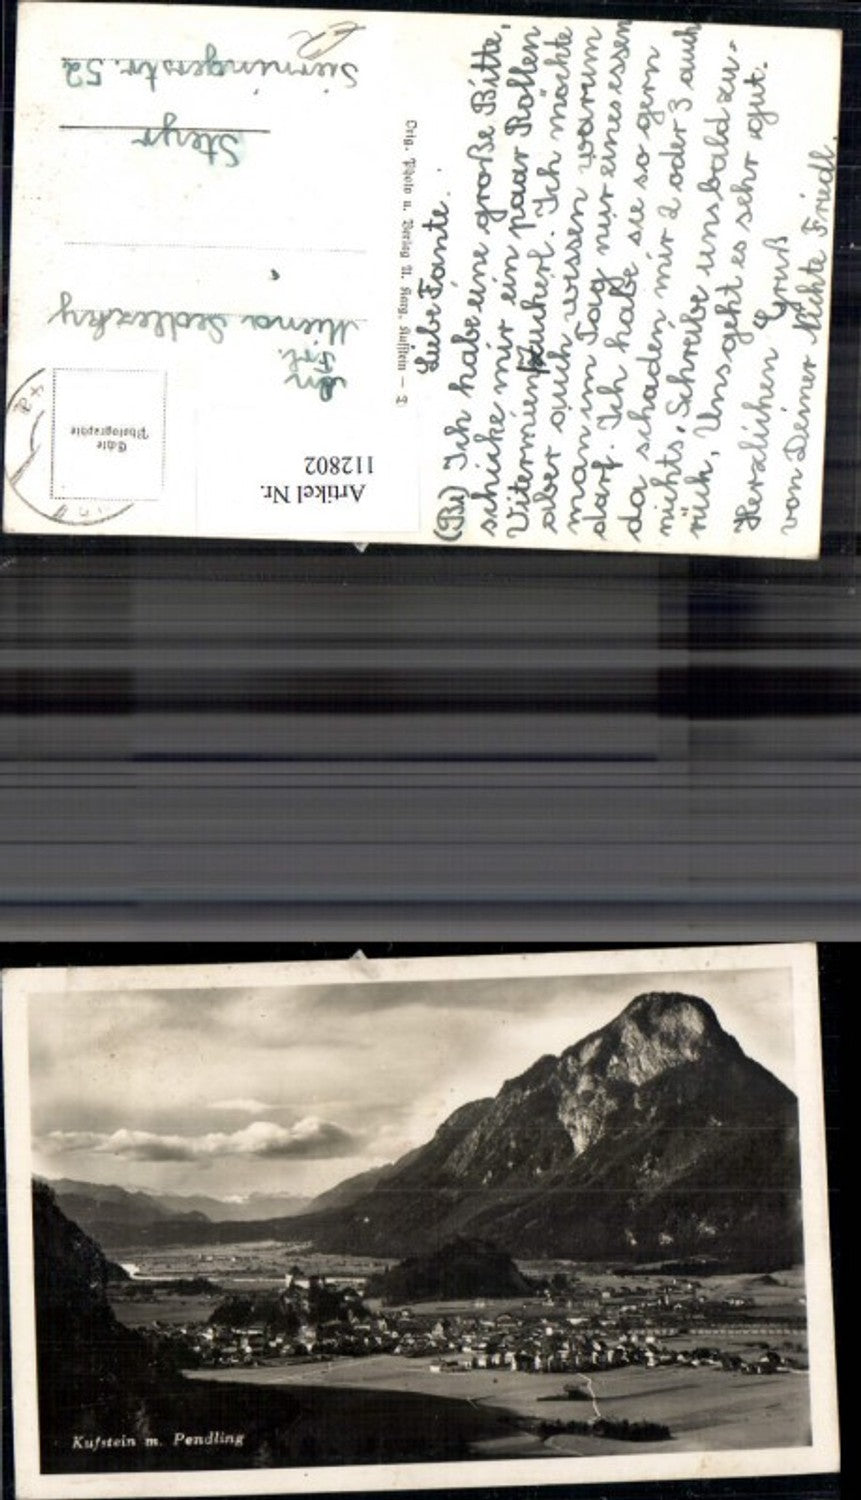 Liebe Tante.
(Bi) Ich habe eine große Bitte,
schicke mir ein paar Rollen
zuckerl. Ich möchte
aber auch wissen warum
man im Tag nur eines essen
darf. Ich habe sie so gern
da schaden mir 2 oder 3 auch
nichts, Schreibe uns bald zu-
rück, Uns geht es sehr gut.
Herzlichen Gruß
von Deiner Nichte Friedl.
Orig. Photo u. Verlag A. Karg, Kufstein –
An
Frl.
Miena Sedlezky
Steyr
Sierningerstr. 52
Echte
Photographie
Artikel Nr.
112802
Kufstein m. Pendling